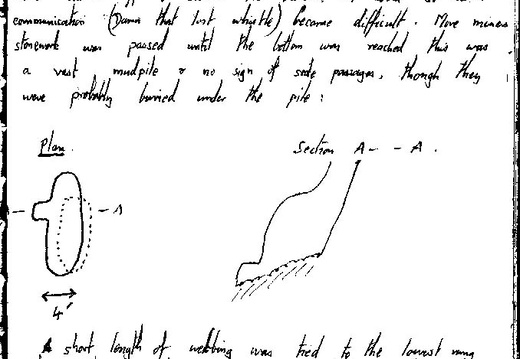 communication (Damn that lost whistle) became difficult. More mines
stonework was passed until the bottom was reached this was
a vast mudpile & no sign of side passages, though they
were probably buried under the pile:
Plan.
Section A- - A.
- - A
4'
A short length of webbing was tied to the lowest rung